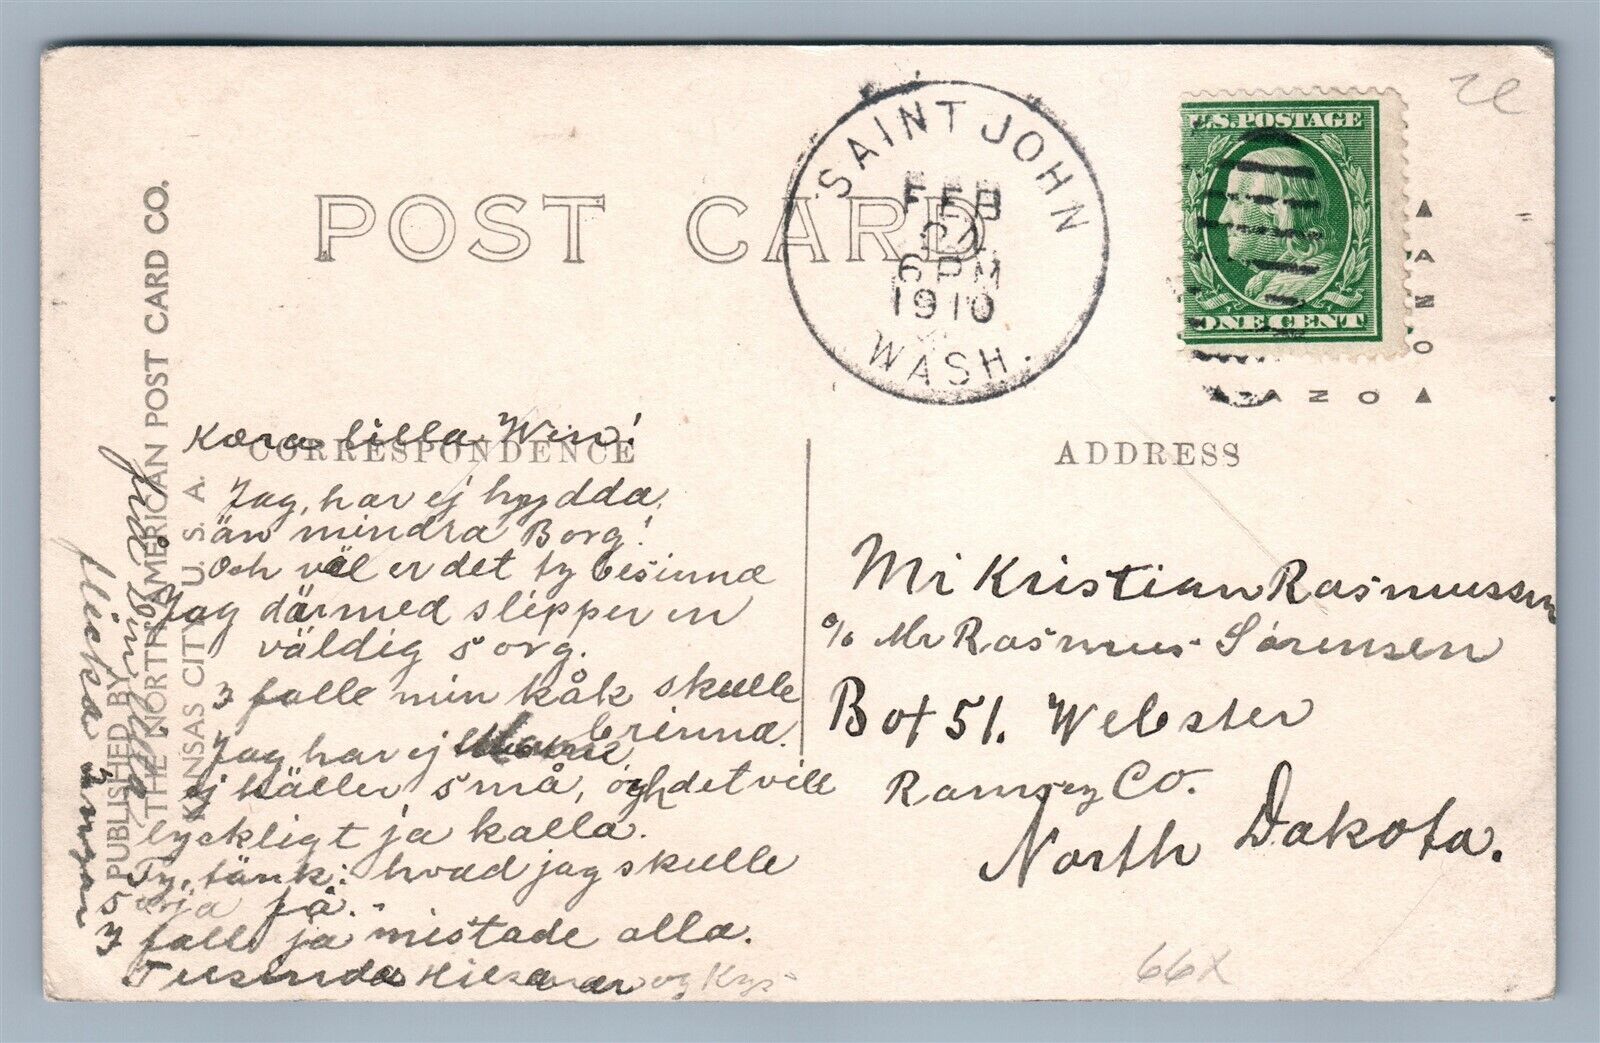 POST CARD
SAINT JOHN
FEB
6 PM
1910
WASH.
U.S. POSTAGE
ONE CENT
CORRESPONDENCE
ADDRESS
PUBLISHED BY
THE NORTH AMERICAN POST CARD CO.
KANSAS CITY, U. S. A.
Kæra lilla Wen!
Jag, har ej hyydda
än mindra Borg!
Och väl er det ty besinna
Jag därmed slipper en
väldig sorg.
I falle min kåk skulle
brinna.
Jag har ej
ej häller små, och det vill
lyckligt ja kalla.
Ty, tänk: hvad jag skulle
sörja få.
I fall ja mistade alla.
Tusinda Hilsener og Kys
från din lilla
flicka
Mr Kristian Rasmussen
% Mr Rasmus Sørensen
Box 51. Webster
Ramsey Co.
North Dakota.
66X